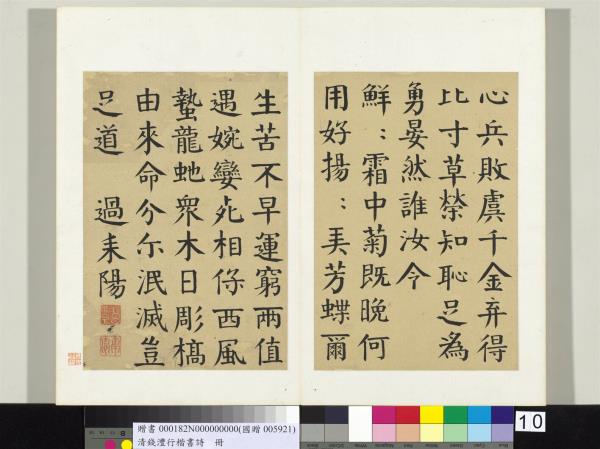 心兵敗虞千金弃得
比寸草榮知恥足為
勇晏然誰汝令
鮮：霜中菊既晚何
用好揚：弄芳蝶爾
生苦不早運窮兩值
遇婉孌死相保西風
蟄龍虵衆木日彫槁
由來命分尔泯滅豈
足道　過耒陽
贈書 000182N000000000(國贈 005921)
清錢灃行楷書詩　冊
10